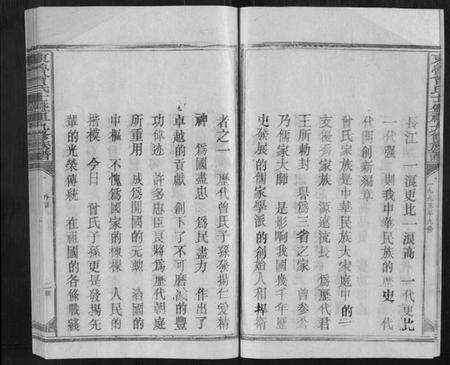 長江 一浪更比一浪高 一代更比
一代强 則我中華民族的歷史 代
代開創新篇章
曾氏家族是中華民族大家庭中的一
支優秀家族 源遠流長 為歷代君
王所勅封 譽為三省之家 曾參
乃儒家大師 是影响我國幾千年歷
史發展的儒家學派的創始人和捍衛
者之一 歷代曾氏子孫發揚仁愛精
神 為國盡忠 為民盡力 作出了
卓越的貢獻 創下了不可磨滅的豐
功偉迹 許多忠臣良將為歷代朝庭
所重用 成為開國的元勛 治國的
中樞 不愧為國家的棟樑 人民的
楷模 今日 曾氏子孫更是發揚先
輩的光榮傳統 在祖國的各條戰綫